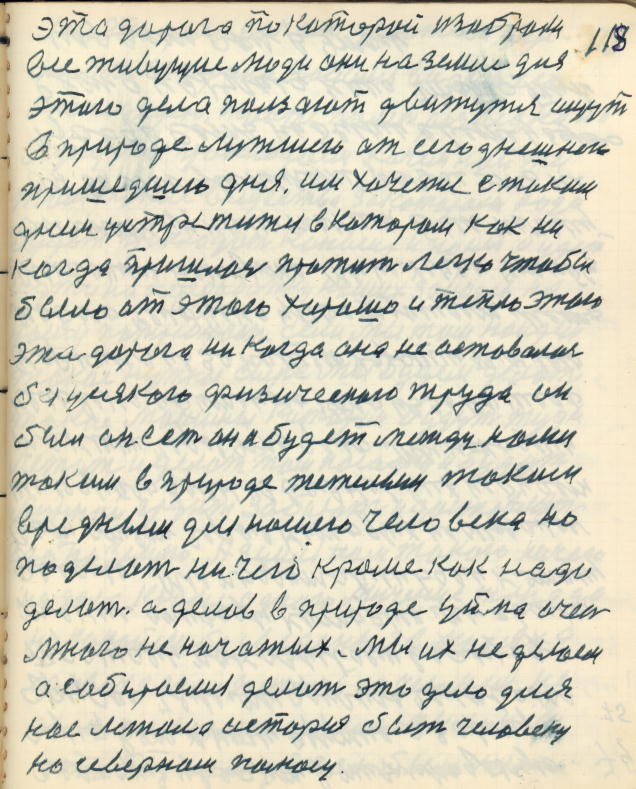 эта дорога по которой избрали
118
все живущие люди они на земле для
этого дела ползают движутся ищут
в природе лутшего от сегоднешнего
пришедшего дня. им хочется с таким
днем устретится в котором как ни
когда пришлось прожит легко чтобы
было от этого хорошо и тепло этого
эта дорога ни когда она не оставалася
без усякого физического труда он
был он ест он и будет между нами
таким в природе тяжелым таким
вредным для нашего человека но
поделат ничего кроме как надо
делат. а делов в природе уйма очен
много не начатых. мы их не делаем
а собираемся делат это дело для
нас легала история быт человеку
на северном полюсу.